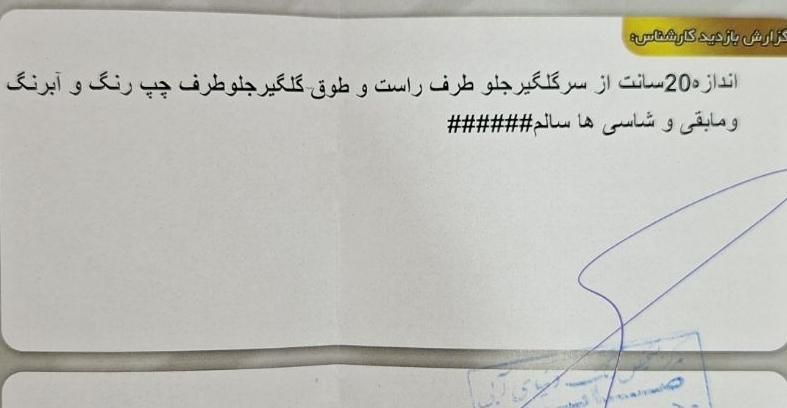 گزارش بازدید کارشناس:
اندازه20سانت از سرگلگیرجلو طرف راست و طوق گلگیرجلوطرف چپ رنگ و آبرنگ
ومابقی و شاسی ها سالم######